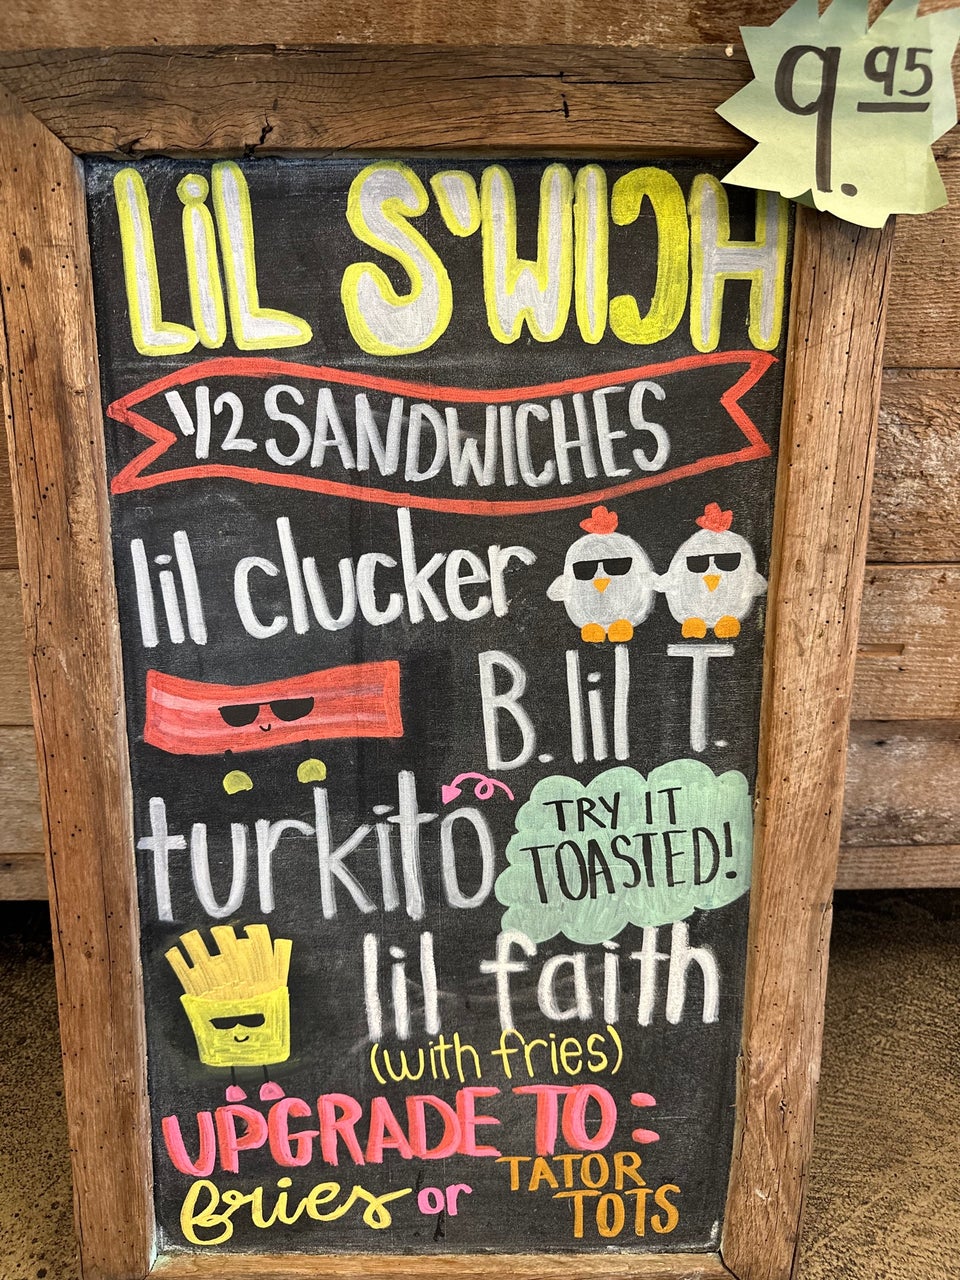 9.95
LiL S'WICH
1/2 SANDWICHES
lil clucker
B. lil T.
turkito
TRY IT
TOASTED!
lil faith
(with fries)
UPGRADE TO:
fries or TATOR
TOTS